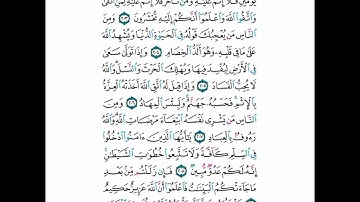 يَوْمَيْنِ فَلَآ إِثْمَ عَلَيْهِ وَمَن تَأَخَّرَ فَلَآ إِثْمَ عَلَيْهِ لِمَنِ ٱتَّقَىٰ
وَٱتَّقُوا۟ ٱللَّهَ وَٱعْلَمُوٓا۟ أَنَّكُمْ إِلَيْهِ تُحْشَرُونَ ٢٠٣ وَمِنَ
ٱلنَّاسِ مَن يُعْجِبُكَ قَوْلُهُۥ فِى ٱلْحَيَوٰةِ ٱلدُّنْيَا وَيُشْهِدُ ٱللَّهَ
عَلَىٰ مَا فِى قَلْبِهِۦ وَهُوَ أَلَدُّ ٱلْخِصَامِ ٢٠٤ وَإِذَا تَوَلَّىٰ سَعَىٰ
فِى ٱلْأَرْضِ لِيُفْسِدَ فِيهَا وَيُهْلِكَ ٱلْحَرْثَ وَٱلنَّسْلَ وَٱللَّهُ
لَا يُحِبُّ ٱلْفَسَادَ ٢٠٥ وَإِذَا قِيلَ لَهُ ٱتَّقِ ٱللَّهَ أَخَذَتْهُ ٱلْعِزَّةُ
بِٱلْإِثْمِ فَحَسْبُهُۥ جَهَنَّمُ وَلَبِئْسَ ٱلْمِهَادُ ٢٠٦ وَمِنَ
ٱلنَّاسِ مَن يَشْرِى نَفْسَهُ ٱبْتِغَآءَ مَرْضَاتِ ٱللَّهِ وَٱللَّهُ
رَءُوفٌۢ بِٱلْعِبَادِ ٢٠٧ يَٰٓأَيُّهَا ٱلَّذِينَ ءَامَنُوا۟ ٱدْخُلُوا۟
فِى ٱلسِّلْمِ كَآفَّةً وَلَا تَتَّبِعُوا۟ خُطُوَٰتِ ٱلشَّيْطَٰنِ
إِنَّهُۥ لَكُمْ عَدُوٌّ مُّبِينٌ ٢٠٨ فَإِن زَلَلْتُم مِّنۢ بَعْدِ
مَا جَآءَتْكُمُ ٱلْبَيِّنَٰتُ فَٱعْلَمُوٓا۟ أَنَّ ٱللَّهَ عَزِيزٌ حَكِيمٌ